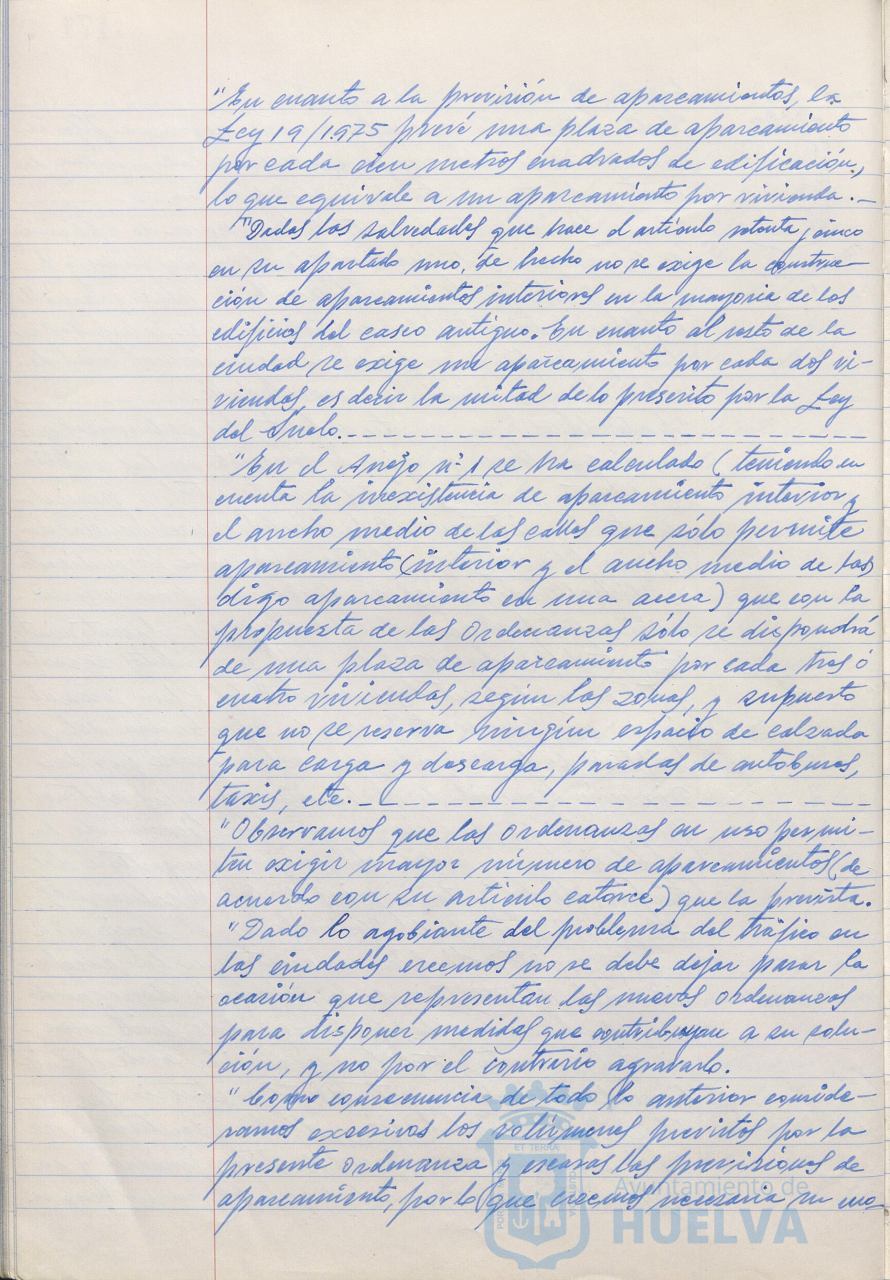 "En cuanto a la previsión de aparcamientos, la
Ley 19/1975 prevé una plaza de aparcamiento
por cada cien metros cuadrados de edificación,
lo que equivale a un aparcamiento por vivienda.–
"Dadas las salvedades que hace el artículo setenta y cinco
en su apartado uno, de hecho no se exige la construc-
ción de aparcamientos interiores en la mayoría de los
edificios del casco antiguo. En cuanto al resto de la
ciudad se exige un aparcamiento por cada dos vi-
viendas, es decir la mitad de lo prescrito por la Ley
del Suelo.
"En el Anejo nº 1 se ha calculado (teniendo en
cuenta la inexistencia de aparcamiento interior y
el ancho medio de las calles que sólo permite
aparcamiento (interior y el ancho medio de las)
digo aparcamiento en una acera) que con la
propuesta de las Ordenanzas sólo se dispondrá
de una plaza de aparcamiento por cada tres ó
cuatro viviendas, según las zonas, y supuesto
que no se reserva ningún espacio de calzada
para carga y descarga, paradas de autobuses,
taxis, etc.
"Observamos que las ordenanzas en uso permi-
ten exigir mayor número de aparcamientos (de
acuerdo con su artículo catorce) que la prevista.
"Dado lo agobiante del problema del tráfico en
las ciudades creemos no se debe dejar pasar la
ocasión que representan las nuevas ordenanzas
para disponer medidas que contribuyan a su solu-
ción, y no por el contrario agravarlo.
"Como consecuencia de todo lo anterior conside-
ramos excesivos los volúmenes previstos por la
presente ordenanza y escasas las previsiones de
aparcamiento, por lo que creemos necesaria su mo-
ET TERRA
Ayuntamiento de
HUELVA